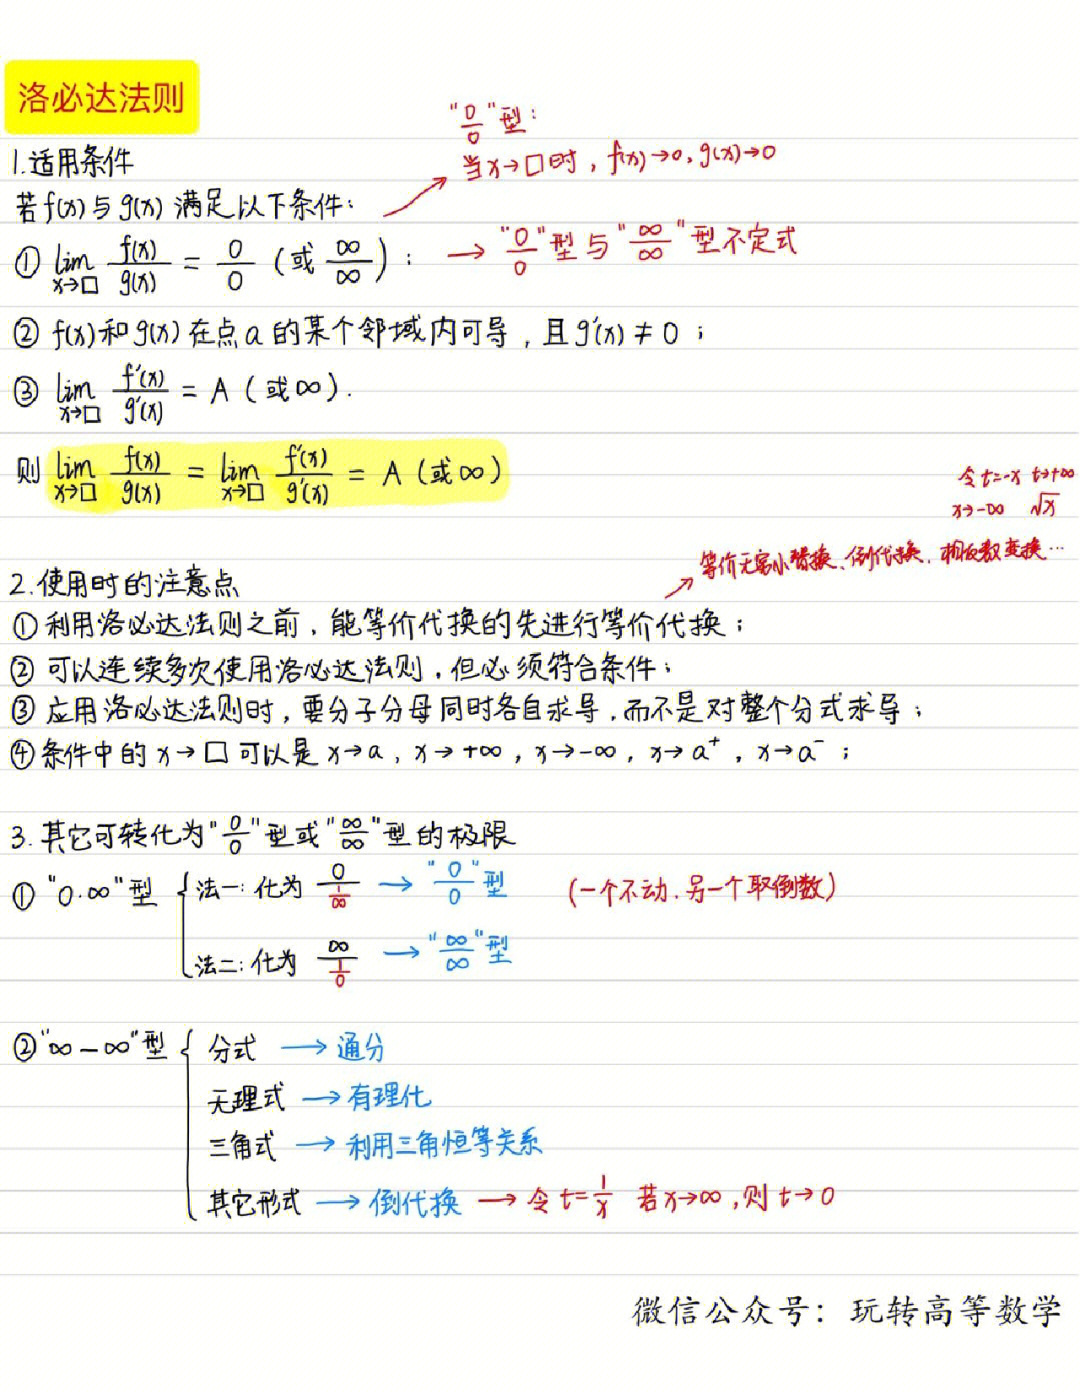 洛必达法则
"0/0"型:
当x→□时，f(x)→0，g(x)→0
1.适用条件
若f(x)与g(x)满足以下条件：
① lim x→□ f(x)/g(x) = 0/0 (或 ∞/∞)； → "0/0"型与"∞/∞"型不定式
② f(x)和g(x)在点a的某个邻域内可导，且g'(x)≠0；
③ lim x→□ f'(x)/g'(x) = A (或∞).
则 lim x→□ f(x)/g(x) = lim x→□ f'(x)/g'(x) = A (或∞)
令t=-x t→+∞
x→-∞ √x
等价无穷小替换、倒代换、相反数变换…
2.使用时的注意点
①利用洛必达法则之前，能等价代换的先进行等价代换；
②可以连续多次使用洛必达法则，但必须符合条件；
③应用洛必达法则时，要分子分母同时各自求导，而不是对整个分式求导；
④条件中的x→□可以是x→a，x→+∞，x→-∞，x→a⁺，x→a⁻；
3.其它可转化为"0/0"型或"∞/∞"型的极限
①"0·∞"型 { 法一：化为 0/(1/∞) → "0/0"型 (一个不动.另一个取倒数)
法二：化为 ∞/(1/0) → "∞/∞"型
②"∞-∞"型 { 分式 → 通分
无理式 → 有理化
三角式 → 利用三角恒等关系
其它形式 → 倒代换 → 令t=1/x 若x→∞，则t→0
微信公众号：玩转高等数学